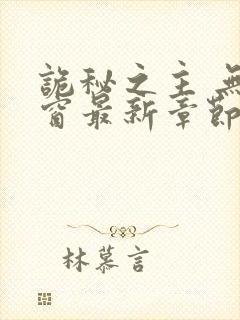 詭秘之主 無
窗最新章節
林慕言